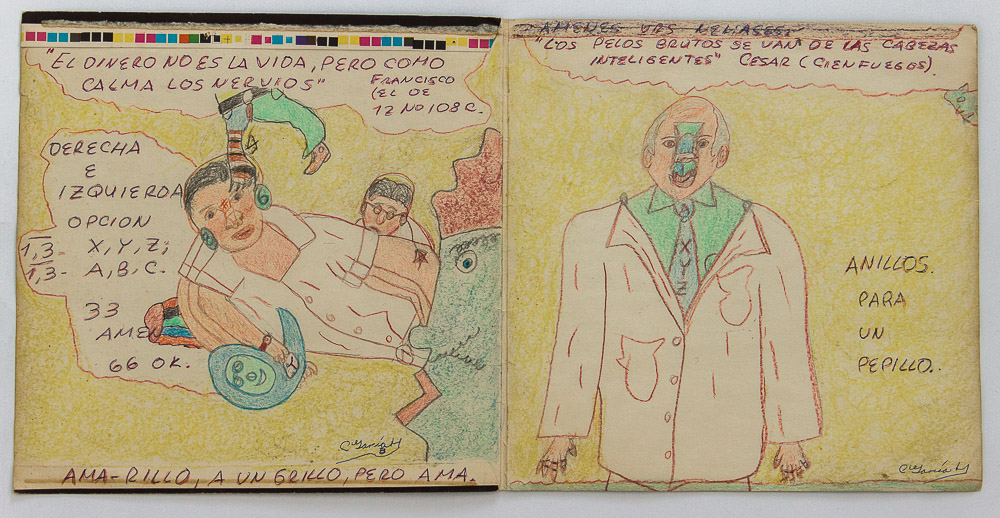 "EL DINERO NO ES LA VIDA, PERO COMO
CALMA LOS NERVIOS"
FRANCISCO
(EL DE
12 NO 108 C.
DERECHA
E
IZQUIERDA
OPCION
1,3- X, Y, Z;
1,3- A, B, C.
33
AMEN
66 OK.
AMA-RILLO, A UN GRILLO, PERO AMA.
"LOS PELOS BRUTOS SE VAN DE LAS CABEZAS
INTELIGENTES" CESAR (CIENFUEGOS).
X
Y
Z
ANILLOS.
PARA
UN
PEPILLO..